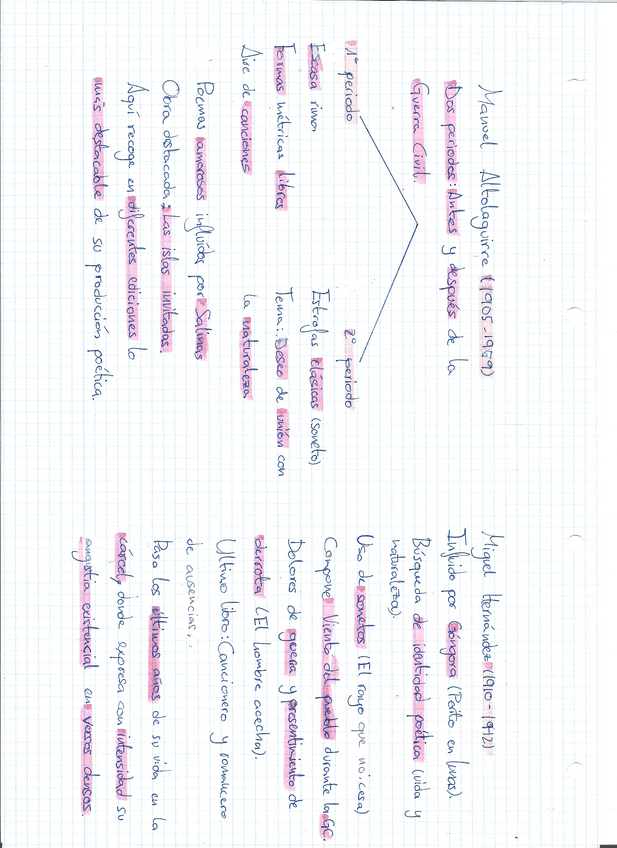 Manuel Altolaguirre (1905-1959)
Dos periodos: Antes y después de la
Guerra Civil.
1º periodo
Escasa rima
Formas métricas libres
Aire de canciones
2º periodo
Estrofas clásicas (soneto)
Tema: Deseo de unión con
la naturaleza
Poemas amorosos influidos por Salinas
Obra destacada: Las islas invitadas.
Aquí recoge en diferentes ediciones lo
más destacable de su producción poética.
Miguel Hernández (1910-1942)
Influido por Góngora (Perito en lunas).
Búsqueda de identidad poética (vida y
naturaleza).
Uso de sonetos (El rayo que no cesa)
Compone Viento del pueblo durante la GC.
Dolores de guerra y presentimiento de
derrota (El hombre acecha).
Último libro: Cancionero y romancero
de ausencias.
Pasa los últimos años de su vida en la
cárcel, donde expresa con intensidad su
angustia existencial en versos densos.